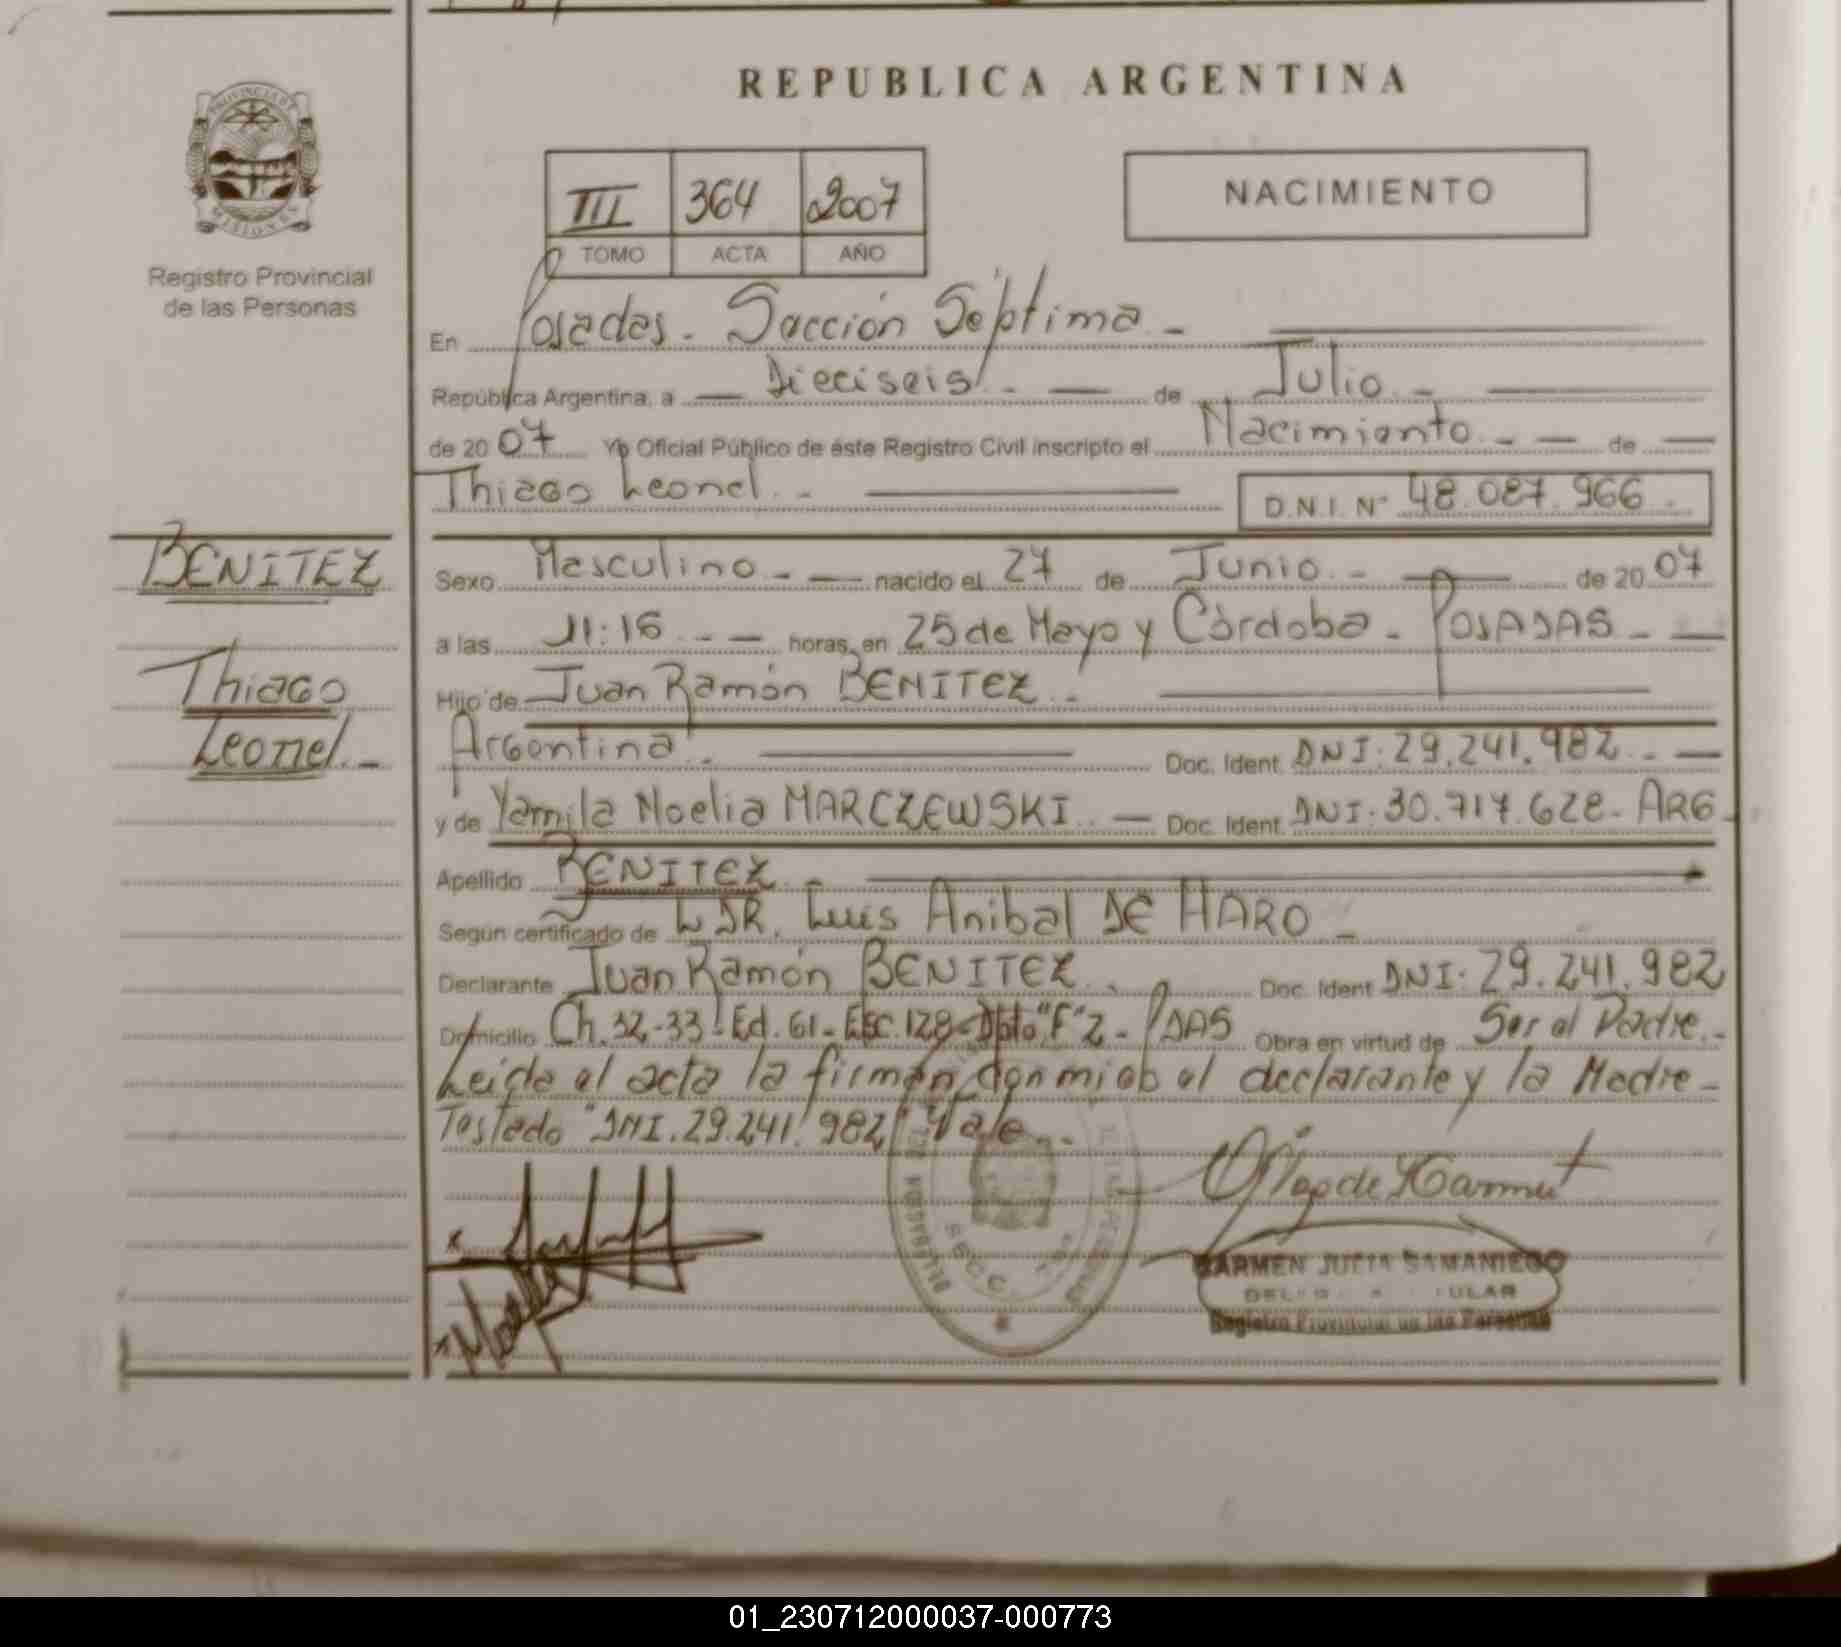 REPUBLICA ARGENTINA
PROVINCIA DE
MISIONES
Registro Provincial
de las Personas
III 364 2007
TOMO ACTA AÑO
NACIMIENTO
En Posadas - Sección Séptima -
República Argentina, a — Dieciseis - — de Julio -
de 2007 Yo Oficial Público de éste Registro Civil inscripto el Nacimiento - — de —
Thiago Leonel. - D.N.I. Nº 48.087.966.
BENITEZ
Thiago
Leonel. -
Sexo Masculino - — nacido el 27 de Junio - — de 2007
a las 11:16 - — horas, en 25 de Mayo y Córdoba - POSADAS - —
Hijo de Juan Ramón BENITEZ. -
Argentina. - Doc. Ident. DNI: 29.241.982. - —
y de Yamila Noelia MARCZEWSKI. — Doc. Ident. DNI: 30.717.628 - ARG -
Apellido BENITEZ
Según certificado de DR. Luis Anibal DE HARO -
Declarante Juan Ramón BENITEZ. Doc. Ident DNI: 29.241.982
Domicilio Ch. 32-33 - Ed. 61 - Esc. 128 - Dpto "F" 2 - PDAS Obra en virtud de Ser el Padre. -
Leida el acta la firman conmigo el declarante y la Madre -
Testado "DNI. 29.241.982" Vale. -
CARMEN JULIA SAMANIEGO
Registro Provincial de las Personas
01_230712000037-000773